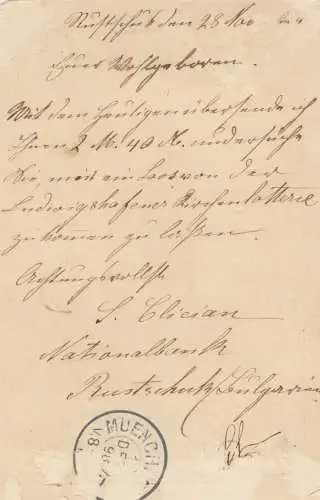 Rustschuk den 28 Nov
Euer Wohlgeboren.
Mit dem Heutigen übersende ich
Ihnen 2 M. 40 und ersuche
Sie, mir ein Los von der
Ludwigshafener Kirchenlotterie
zukommen zu laßen.
Achtungsvollst
S. Elician
Nationalbank
Rustschuk, Bulgarien
MUENCH